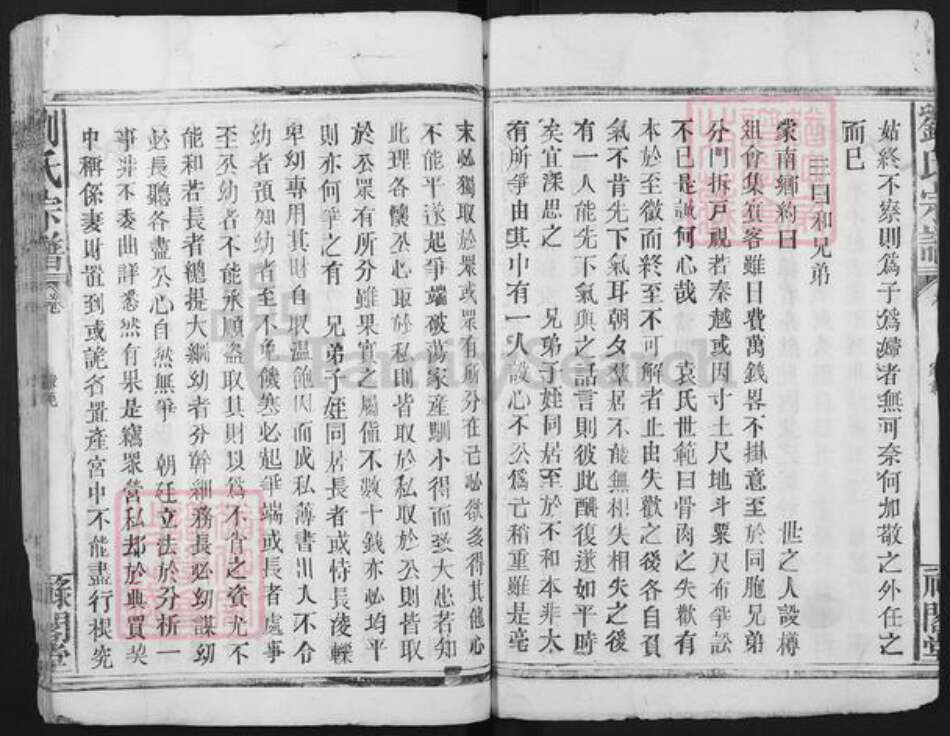 姑終不察則爲子爲婦者無可奈何加敬之外任之
而已
三曰和兄弟
蒙南鄉約曰 世之人設樽
俎會集賓客雖日費萬錢畧不掛意至於同胞兄弟
分門拆戸視若秦越或因寸土尺地斗粟尺布爭訟
不已是誠何心哉 袁氏世範曰骨肉之失歡有
本於至微而終至不可解者止由失歡之後各自負
氣不肯先下氣耳朝夕羣居不能無相失相失之後
有一人能先下氣與之話言則彼此酬復遂如平時
矣宜深思之 兄弟子姪同居至於不和本非大
有所爭由其中有一人設心不公爲己稍重雖是毫
末必獨取於眾或眾有所分在己必欲多得其他心
不能平遂起爭端破蕩家產馴小得而致大患若知
此理各懷公心取於私則皆取於私取於公則皆取
於公眾有所分雖果實之屬値不數十錢亦必均平
則亦何爭之有 兄弟子姪同居長者或恃長凌轢
卑幼專用其財自取温飽因而成私薄書出入不令
幼者預知幼者至不免饑寒必起爭端或長者處事
至公幼者不能承順盜取其財以爲不肖之資尤不
能和若長者總提大綱幼者分幹細務長必幼謀幼
必長聽各盡公心自然無爭 朝廷立法於分析一
事非不委曲詳悉然有果是竊眾營私却於典買契
中稱係妻財置到或詭名置產官中不能盡行根究
劉氏宗譜
卷
祿閣堂
劉氏宗譜
祿閣堂
FamilySearch